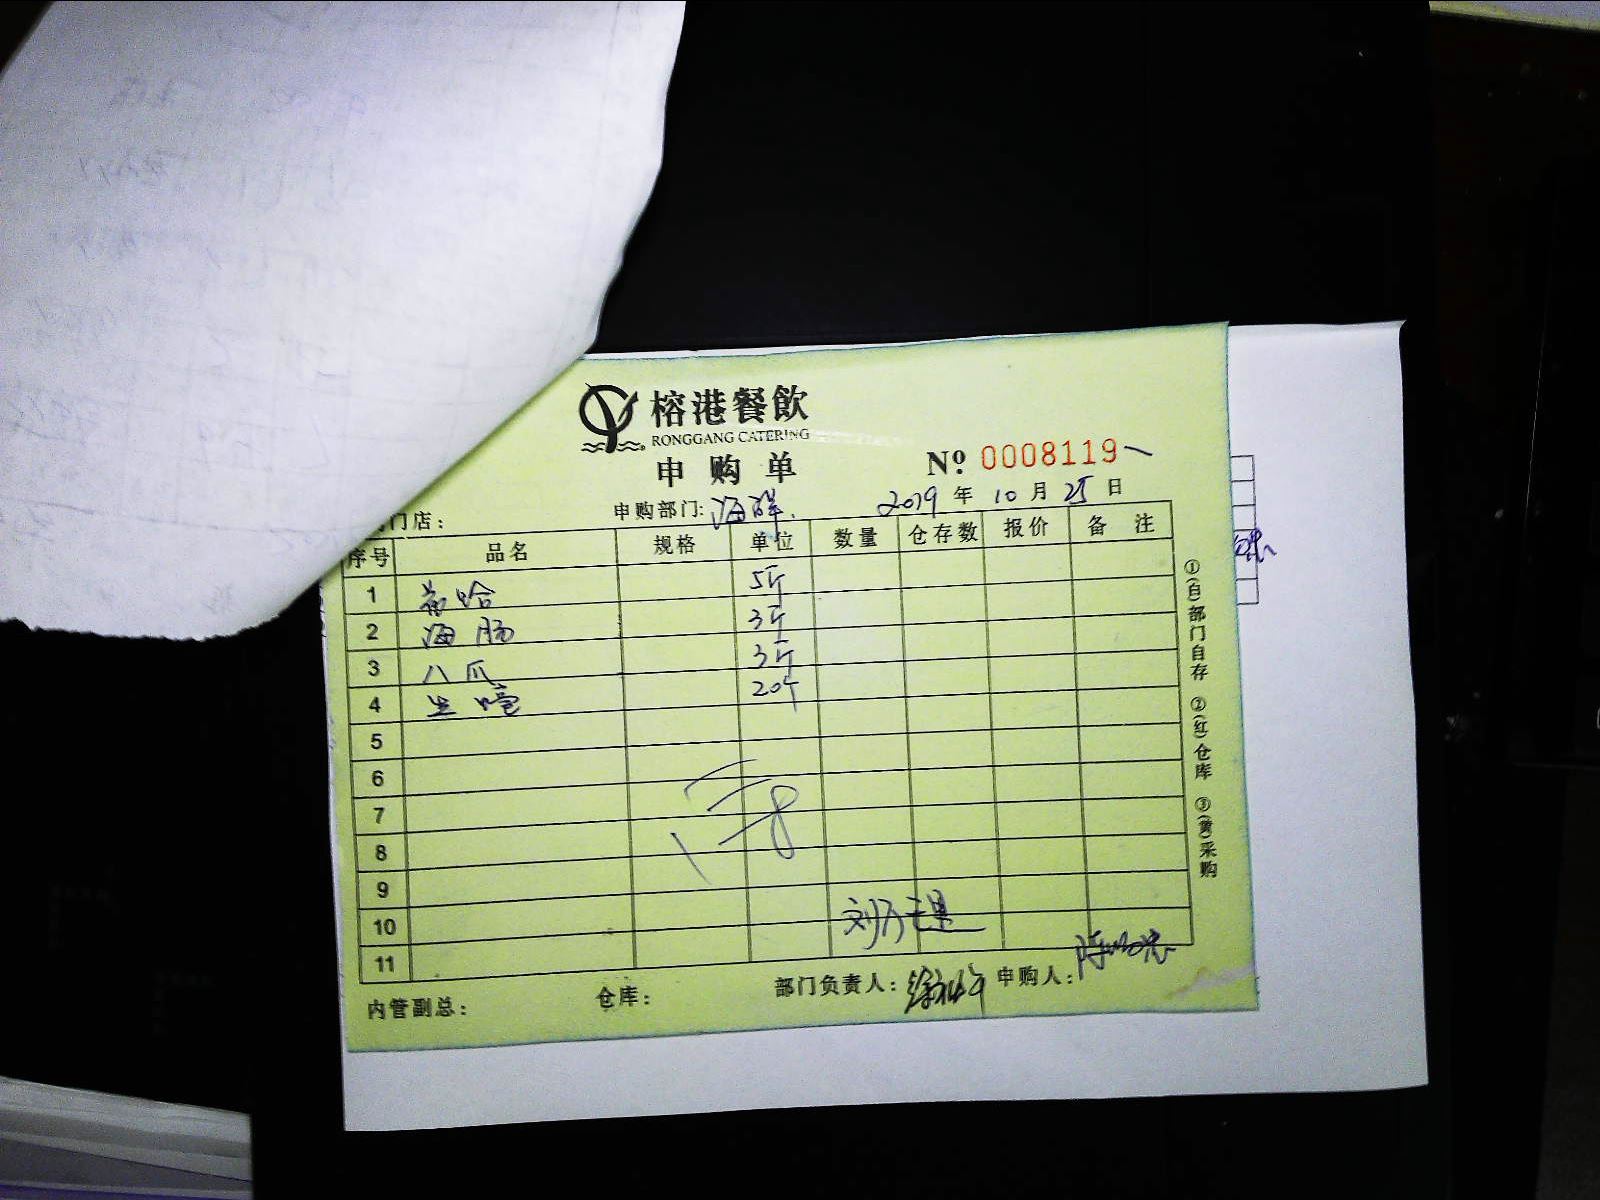 榕港餐飲
RONGGANG CATERING
申购单
No. 0008119
门店： 申购部门：海鲜 2019年10月25日
序号 品名 规格 单位 数量 仓存数 报价 备注
1 哈 5斤
2 海肠 3斤
3 八爪 3斤
4 生蠔 20个
5
6
7
8
9
10
11
内管副总： 仓库： 部门负责人： 申购人：
①(白)部门自存 ②(红)仓库 ③(黄)采购